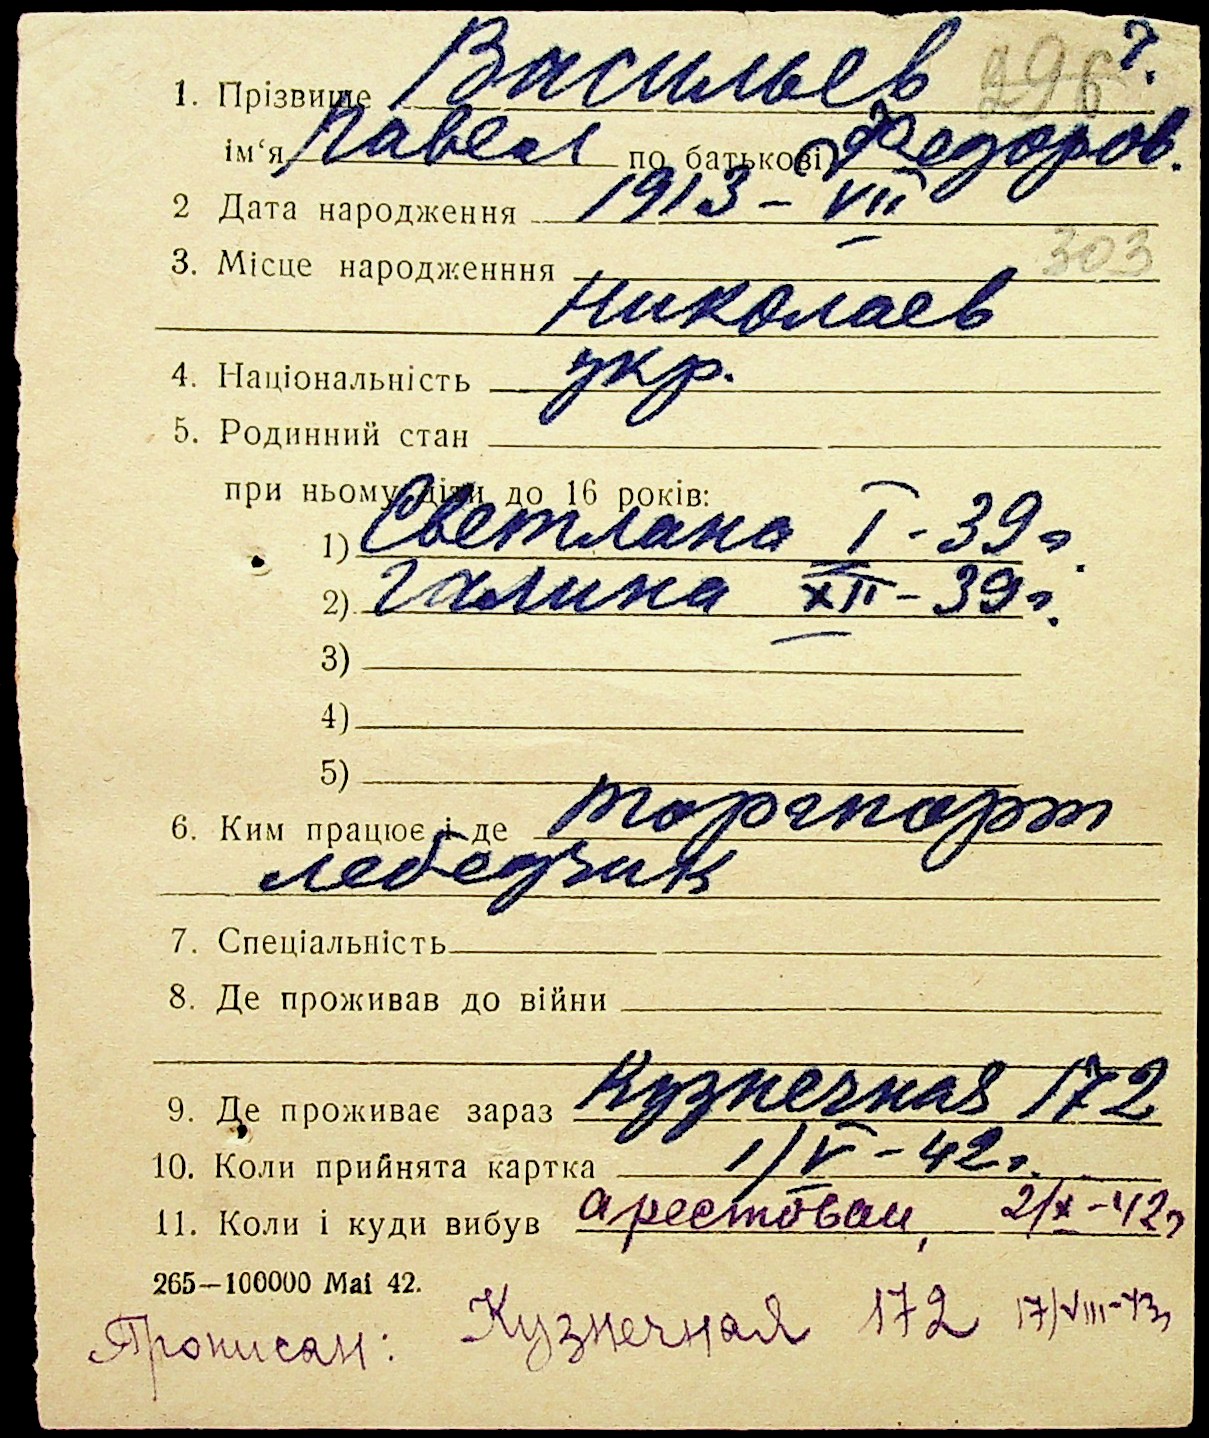 296 7.
1. Прізвище Васильев
ім‘я Павел по батькові Федоров.
2 Дата народження 1913 – VII
303
3. Місце народженння
Николаев
4. Національність укр.
5. Родинний стан
при ньому діти до 16 років:
1) Светлана I - 39 г.
2) Галина XII - 39 г.
3)
4)
5)
6. Ким працює і де торгпорт
лебедчик
7. Спеціальність
8. Де проживав до війни
9. Де проживає зараз Кузнечная 172
10. Коли прийнята картка 1/V - 42 г.
11. Коли і куди вибув арестован, 2/X - 42 г
265—100000 Mai 42.
Прописан: Кузнечная 172 17/VIII-43